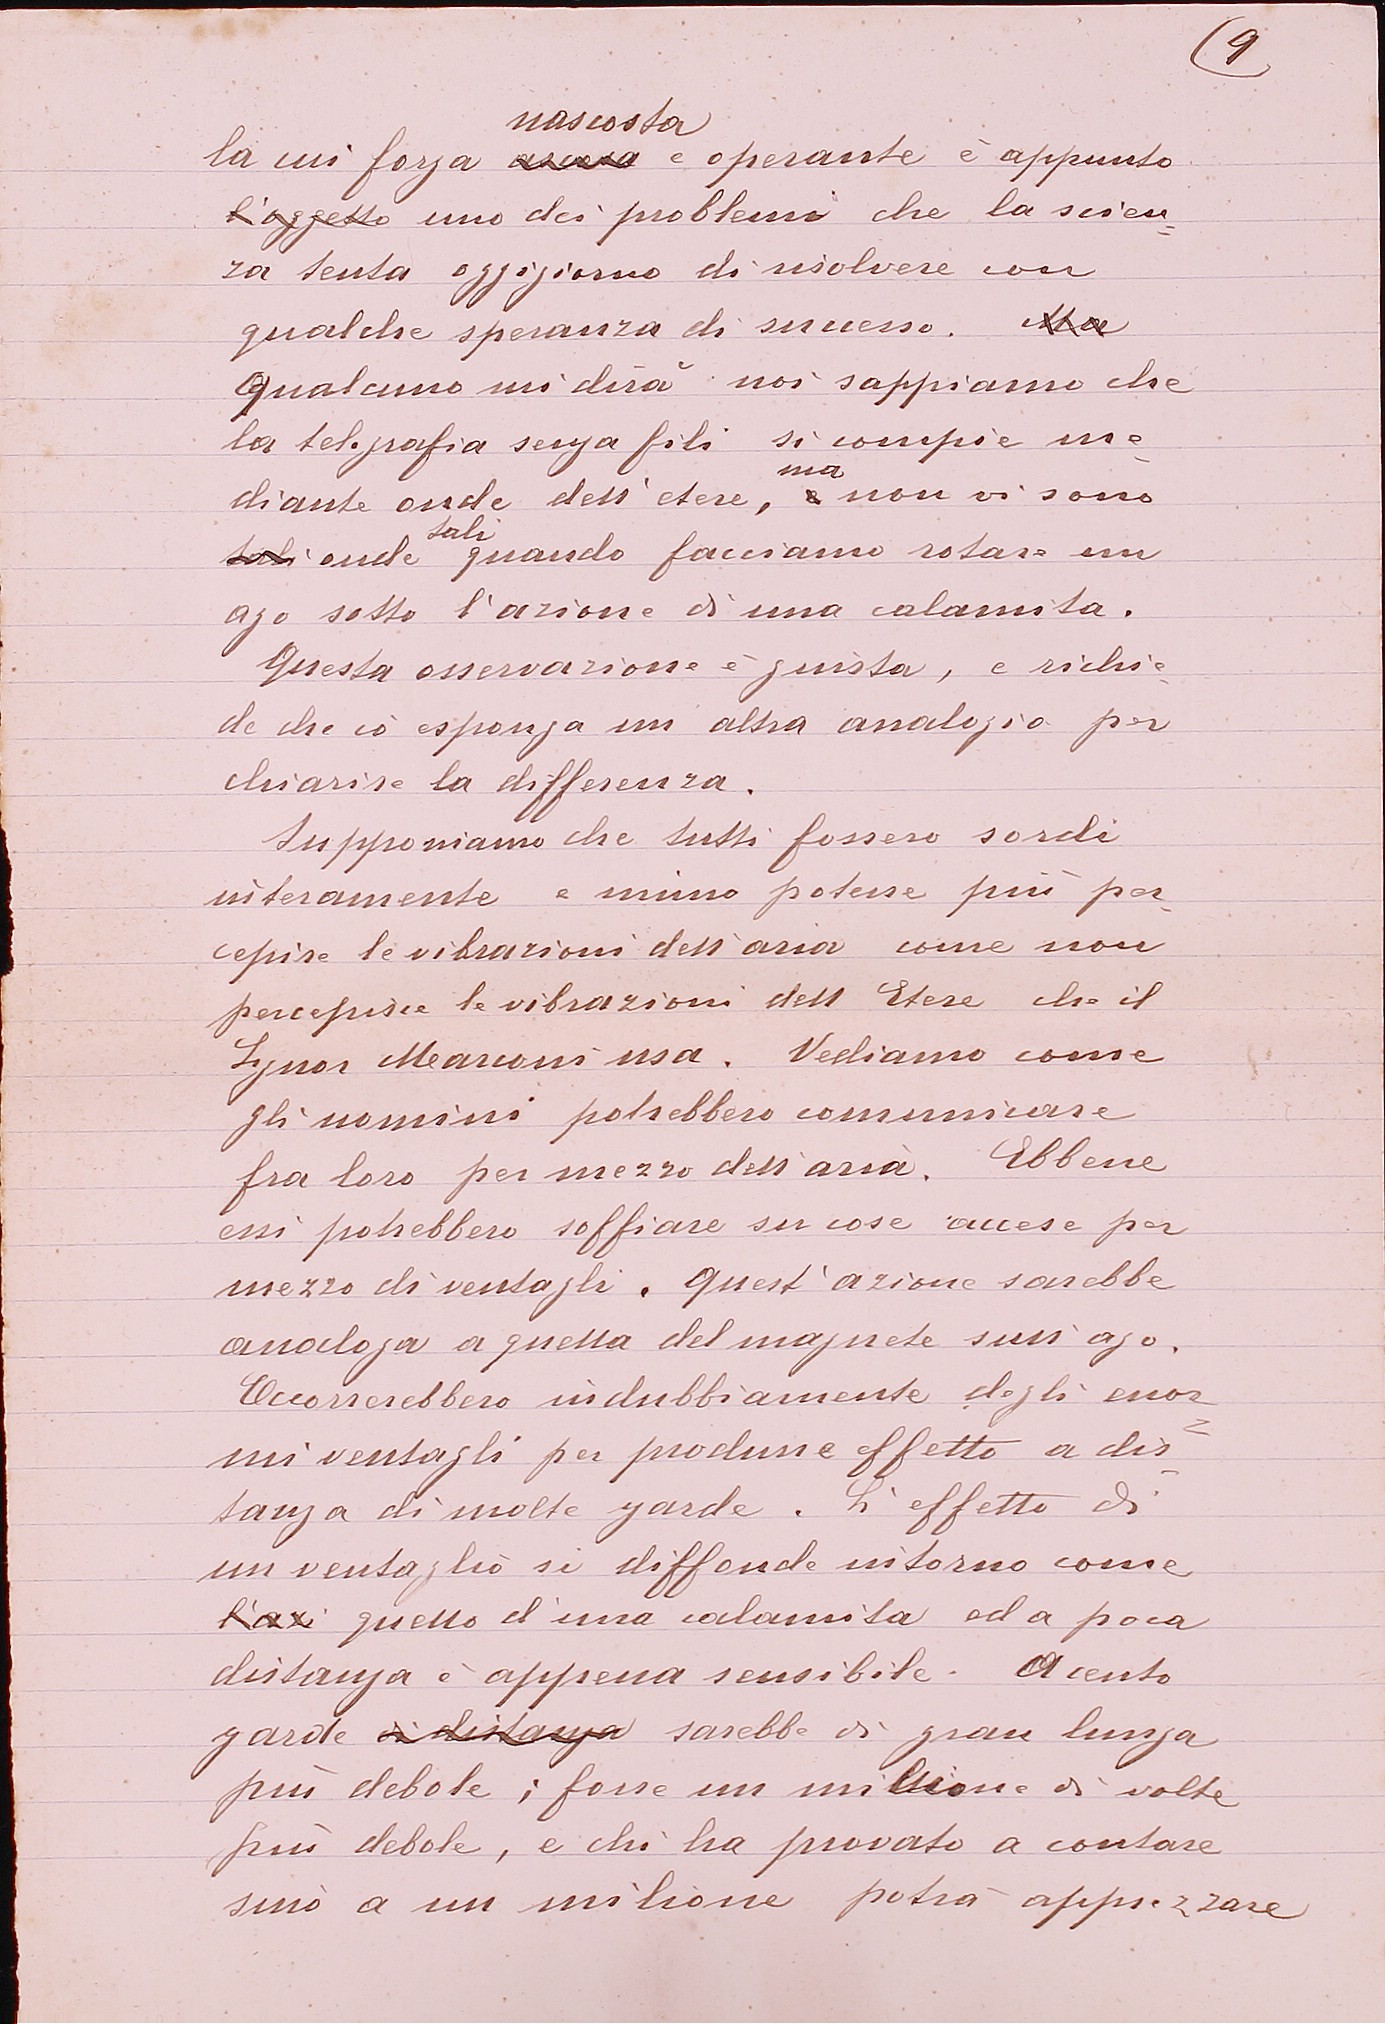 (9
nascosta
la cui forza ascosa e operante è appunto
l'oggetto uno dei problemi che la scien=
za tenta oggigiorno di risolvere con
qualche speranza di successo. Ma
Qualcuno mi dirà noi sappiamo che
la telegrafia senza fili si compie me-
ma
diante onde dell'etere, e non vi sono
tali
tali onde quando facciamo rotare un
ago sotto l'azione di una calamita.
Questa osservazione è giusta, e richie-
de che io esponga un altra analogia per
chiarire la differenza.
Supponiamo che tutti fossero sordi
interamente e niuno potesse più per-
cepire le vibrazioni dell'aria come non
percepisce le vibrazioni dell Etere che il
Signor Marconi usa. Vediamo come
gli uomini potrebbero comunicare
fra loro per mezzo dell'aria. Ebbene
essi potrebbero soffiare su cose accese per
mezzo di ventagli. Quest'azione sarebbe
analoga a quella del magnete sull'ago.
Occorrerebbero indubbiamente degli enor=
mi ventagli per produrre effetto a dis-
tanza di molte yarde. L'effetto di
un ventaglio si diffonde intorno come
l'azi quello d'una calamita ed a poca
distanza è appena sensibile. A cento
yarde di distanza sarebbe di gran lunga
più debole; forse un milione di volte
più debole, e chi ha provato a contare
sino a un milione potrà apprezzare